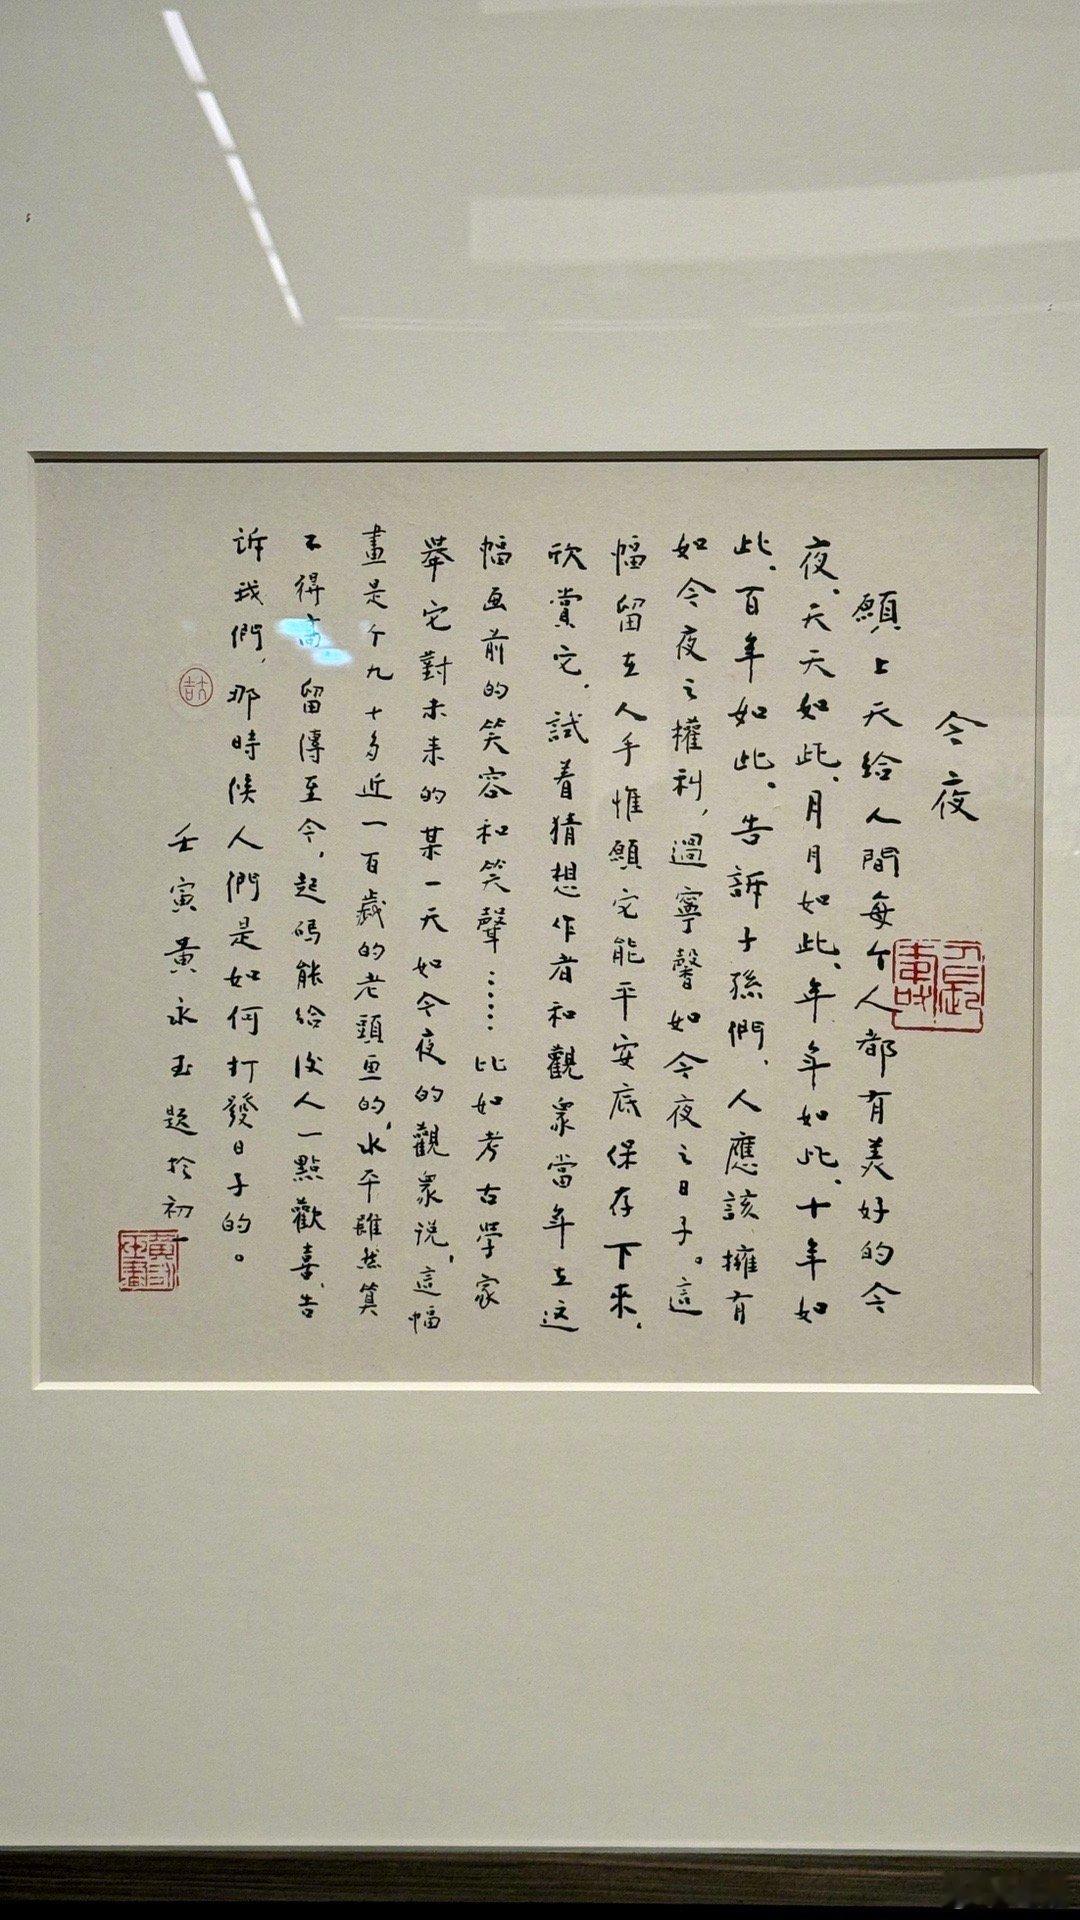 今夜
願上天給人間每个人都有美好的今
夜、天天如此、月月如此、年年如此、十年如
此、百年如此。告訴子孫們、人應該擁有
如今夜之權利，過寧馨如今夜之日子。這
幅留在人手惟願它能平安底保存下來、
欣賞它、試着猜想作者和觀眾當年在这
幅画前的笑容和笑聲……比如考古学家
舉它對未来的某一天如今夜的觀眾说，這幅
畫是个九十多近一百歲的老頭画的，水平雖然算
不得高，留傳至今，起碼能給後人一點歡喜、告
訴我們，那時候人們是如何打發日子的。
壬寅黃永玉題於初一
黃永玉畫